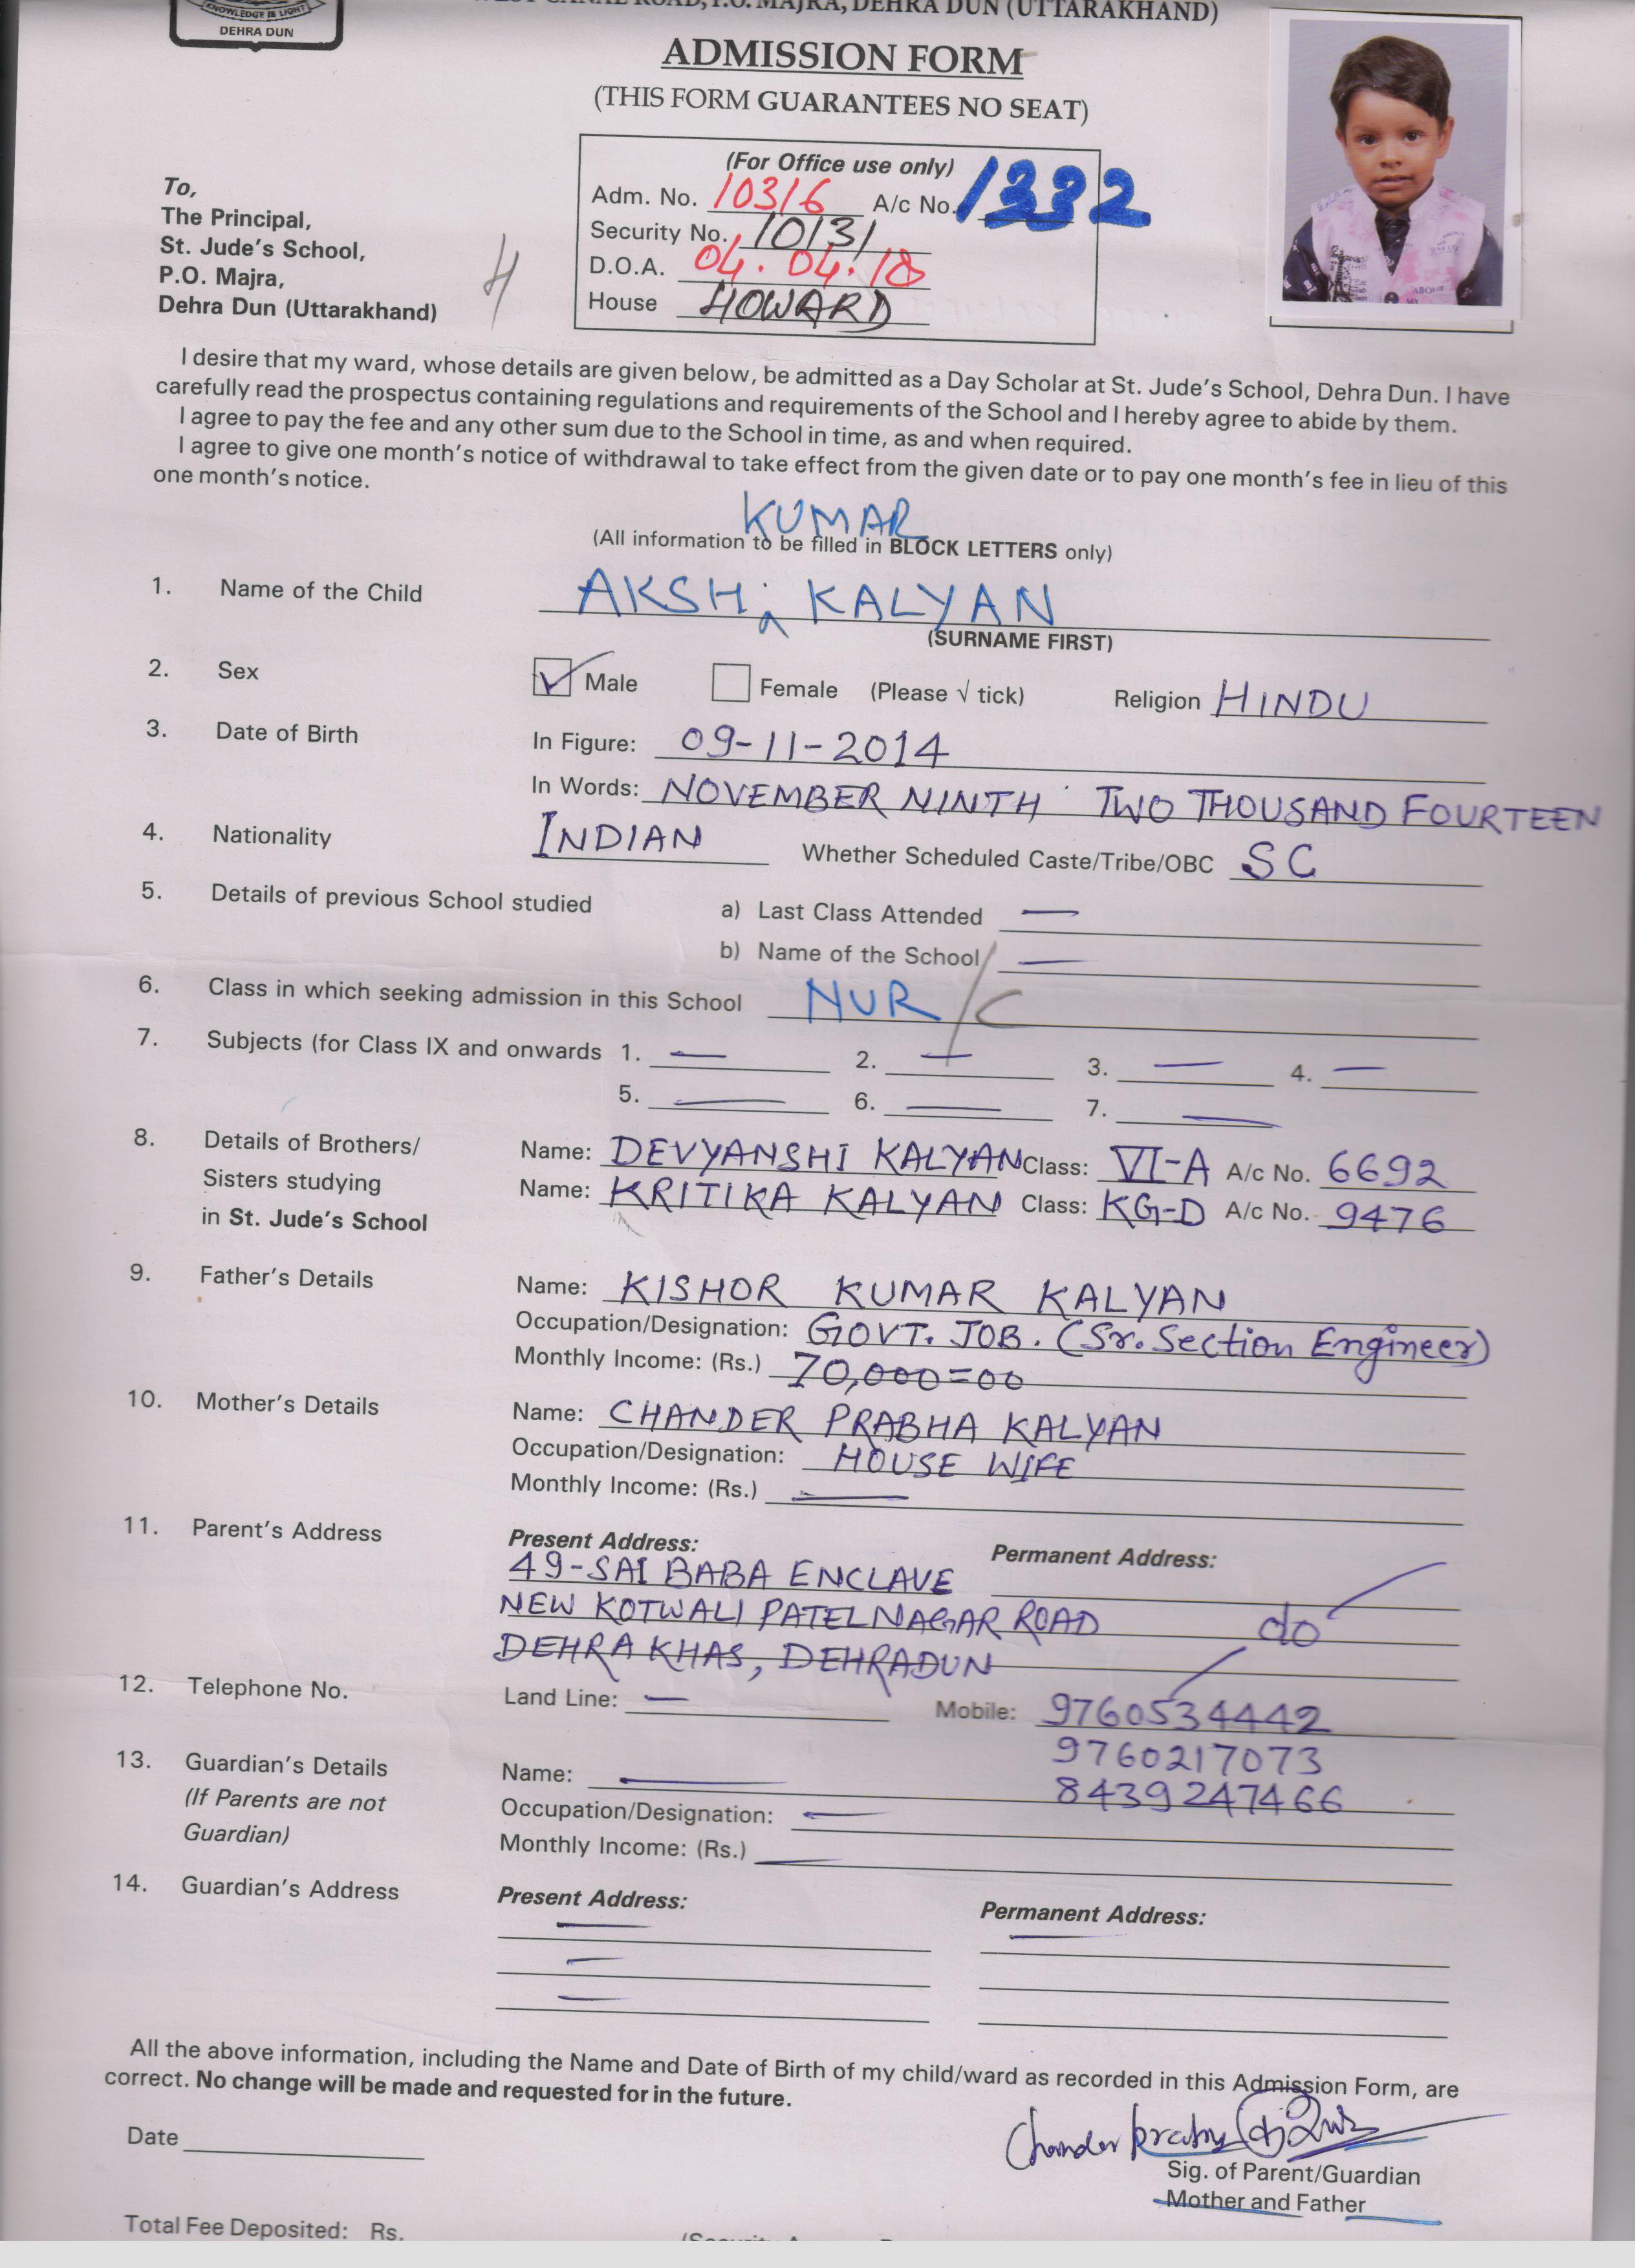 KNOWLEDGE IS LIGHT
DEHRA DUN
WEST CANAL ROAD, P.O. MAJRA, DEHRA DUN (UTTARAKHAND)
ADMISSION FORM
(THIS FORM GUARANTEES NO SEAT)
(For Office use only)
Adm. No. 10316 A/c No. 1332
Security No. 10131
D.O.A. 04.04.18
House HOWARD
To,
The Principal,
St. Jude's School,
P.O. Majra,
Dehra Dun (Uttarakhand)
H
I desire that my ward, whose details are given below, be admitted as a Day Scholar at St. Jude's School, Dehra Dun. I have
carefully read the prospectus containing regulations and requirements of the School and I hereby agree to abide by them.
I agree to pay the fee and any other sum due to the School in time, as and when required.
I agree to give one month's notice of withdrawal to take effect from the given date or to pay one month's fee in lieu of this
one month's notice.
KUMAR
(All information to be filled in BLOCK LETTERS only)
1. Name of the Child AKSH KALYAN
(SURNAME FIRST)
2. Sex Male Female (Please √ tick) Religion HINDU
3. Date of Birth In Figure: 09-11-2014
In Words: NOVEMBER NINTH TWO THOUSAND FOURTEEN
4. Nationality INDIAN Whether Scheduled Caste/Tribe/OBC SC
5. Details of previous School studied a) Last Class Attended —
b) Name of the School —
6. Class in which seeking admission in this School NUR/C
7. Subjects (for Class IX and onwards 1. — 2. — 3. — 4. —
5. — 6. — 7. —
8. Details of Brothers/ Name: DEVYANSHI KALYAN Class: VI-A A/c No. 6692
Sisters studying Name: KRITIKA KALYAN Class: KG-D A/c No. 9476
in St. Jude's School
9. Father's Details Name: KISHOR KUMAR KALYAN
Occupation/Designation: GOVT. JOB. (Sr. Section Engineer)
Monthly Income: (Rs.) 70,000=00
10. Mother's Details Name: CHANDER PRABHA KALYAN
Occupation/Designation: HOUSE WIFE
Monthly Income: (Rs.) —
11. Parent's Address Present Address: Permanent Address:
49-SAI BABA ENCLAVE
NEW KOTWALI PATEL NAGAR ROAD do
DEHRA KHAS, DEHRADUN
12. Telephone No. Land Line: — Mobile: 9760534442
9760217073
8439247466
13. Guardian's Details Name: —
(If Parents are not Occupation/Designation: —
Guardian) Monthly Income: (Rs.) —
14. Guardian's Address Present Address: Permanent Address:
— —
—
—
All the above information, including the Name and Date of Birth of my child/ward as recorded in this Admission Form, are
correct. No change will be made and requested for in the future.
Date
Chander
Sig. of Parent/Guardian
Mother and Father
Total Fee Deposited: Rs.